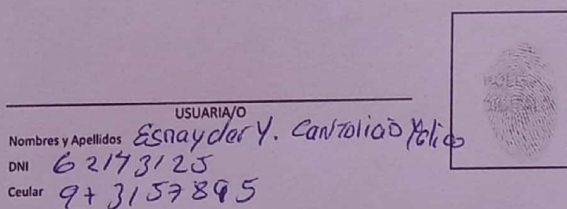 USUARIA/O
Nombres y Apellidos Esnayder Y. Cantolicao
DNI 62173125
Ceular 973157895